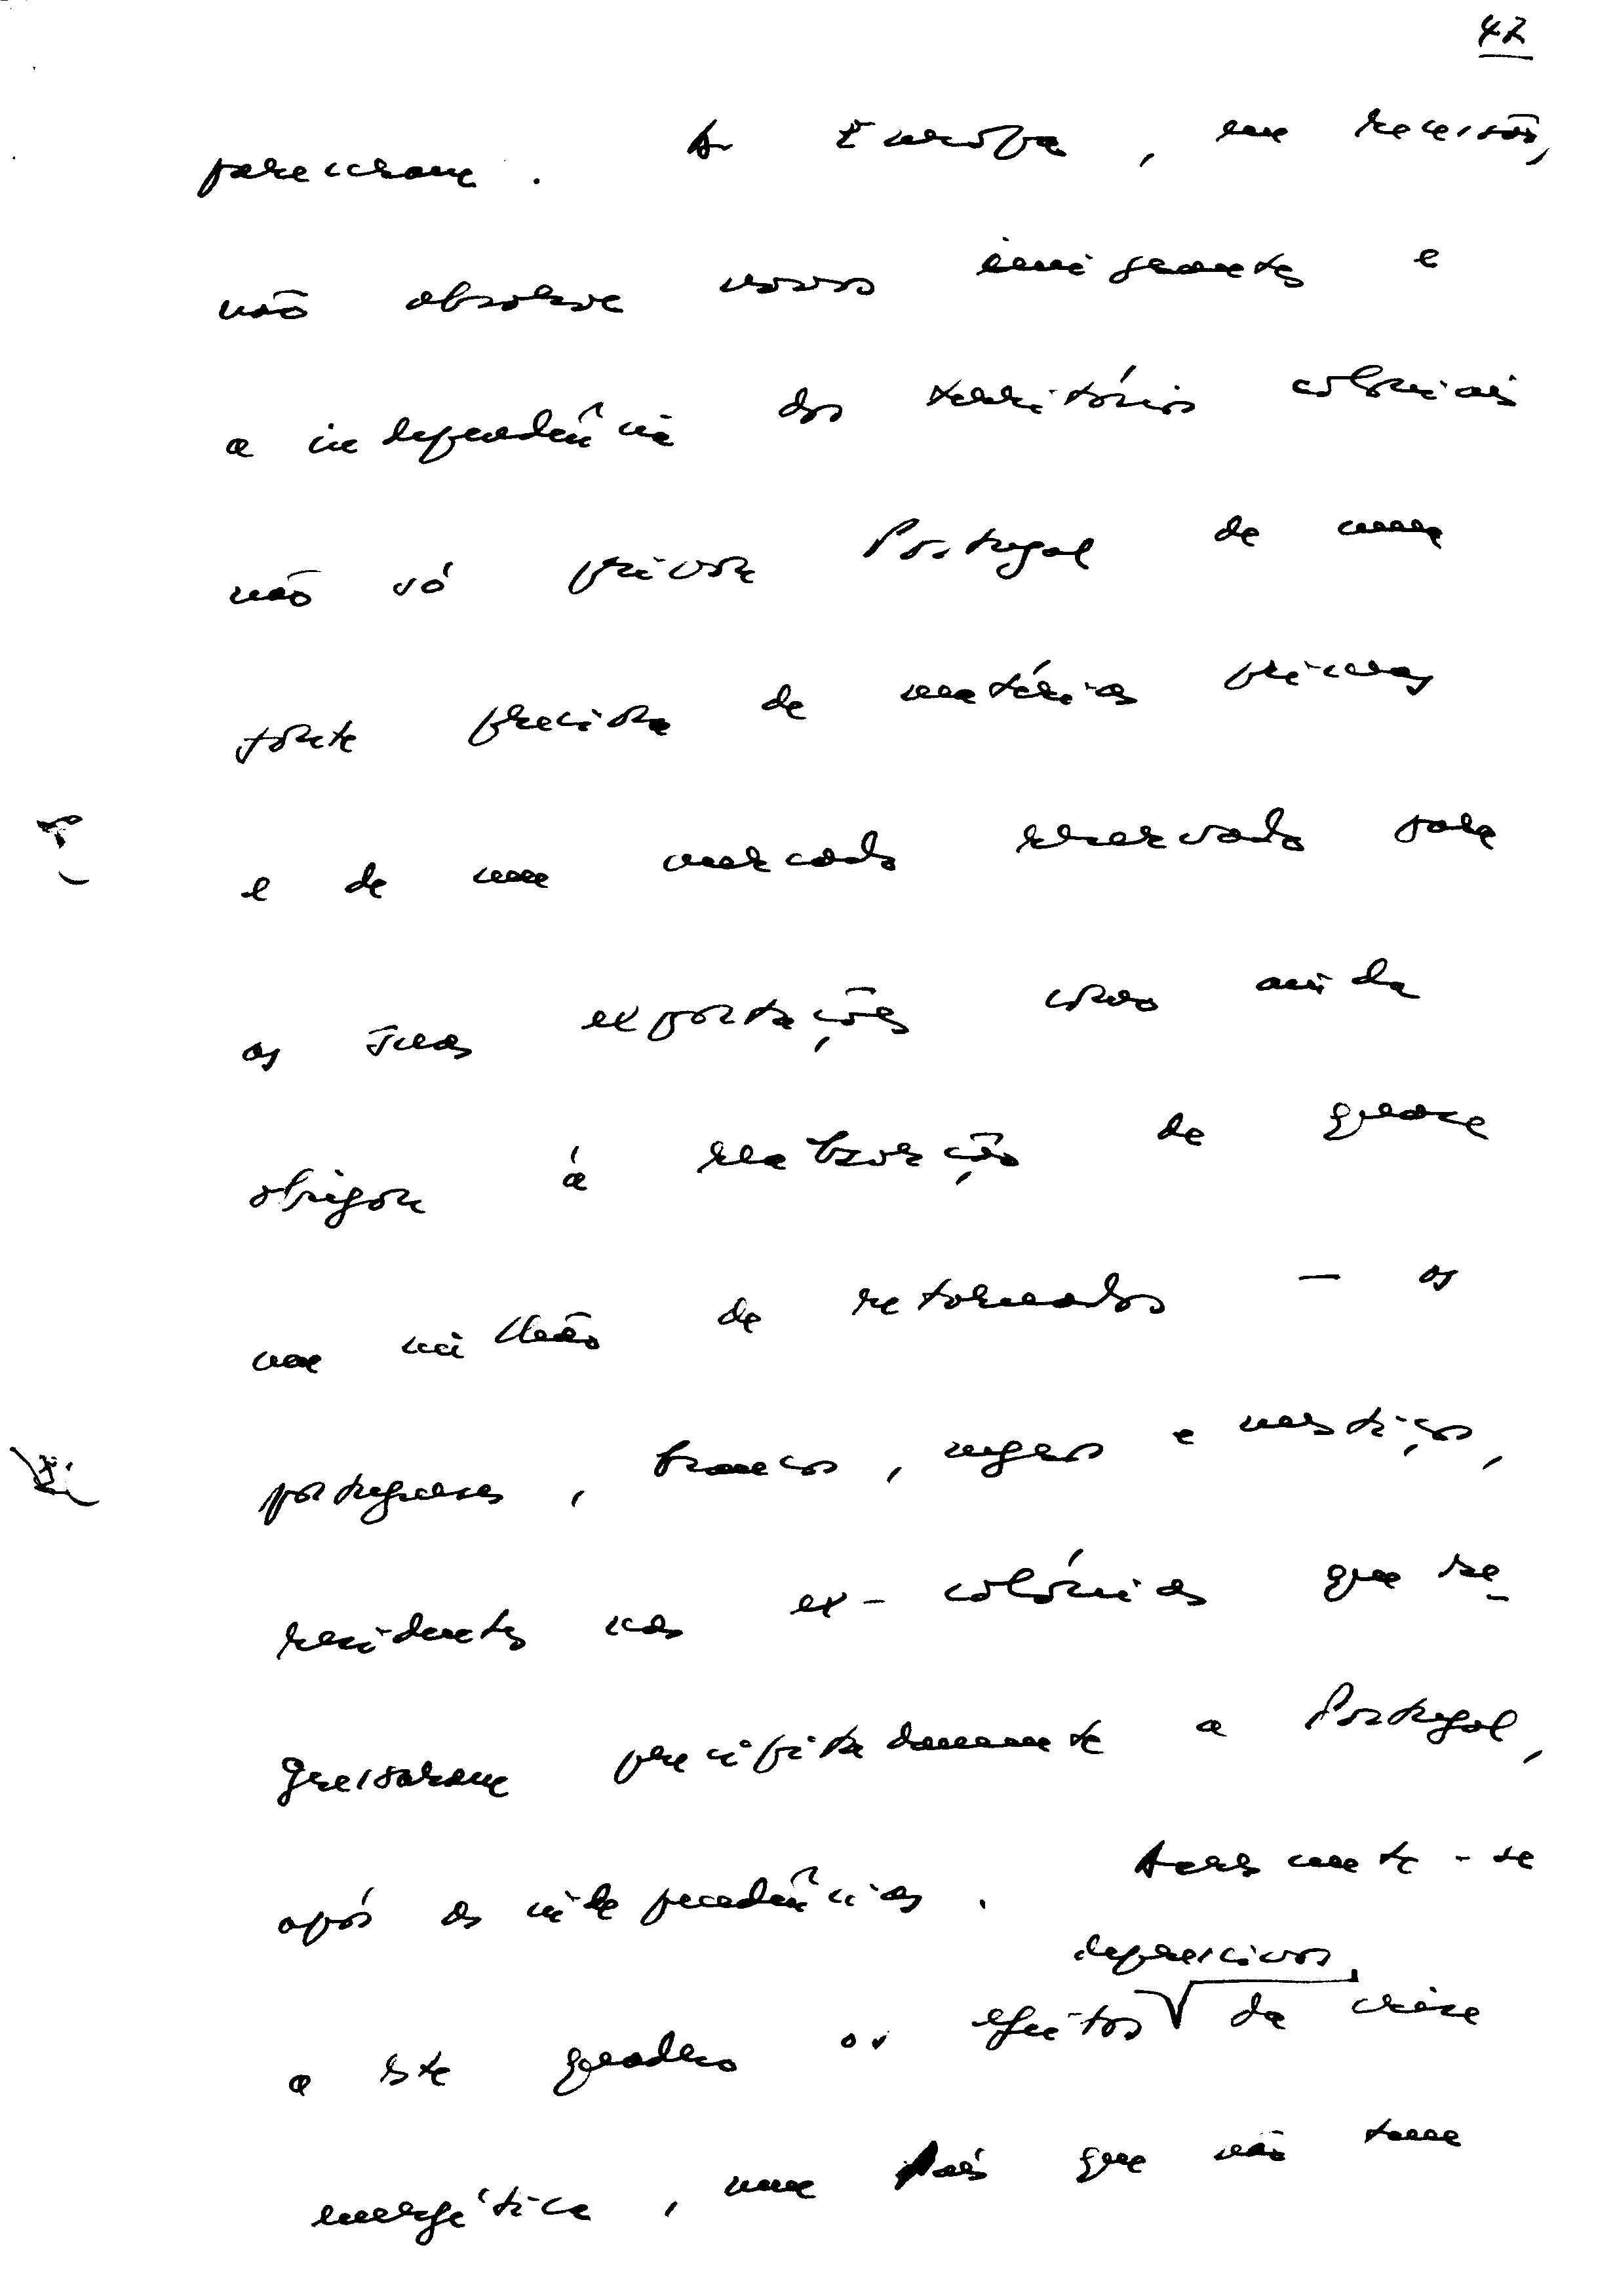 42
pareceram. A Europa, em recessão,
não absorve novos imigrantes e
a independência dos territórios coloniais
não só privou Portugal de uma
fonte preciosa de matérias primas
e de um mercado reservado para
as suas exportações como ainda
obrigou à reabsorção de quase
um milhão de retornados — os
portugueses, brancos, negros e mestiços,
residentes nas ex-colónias que re-
gressaram precipitadamente a Portugal,
após as independências. Acrescente-se
depressivos
a este quadro os efeitos da crise
energética, num País que não tem